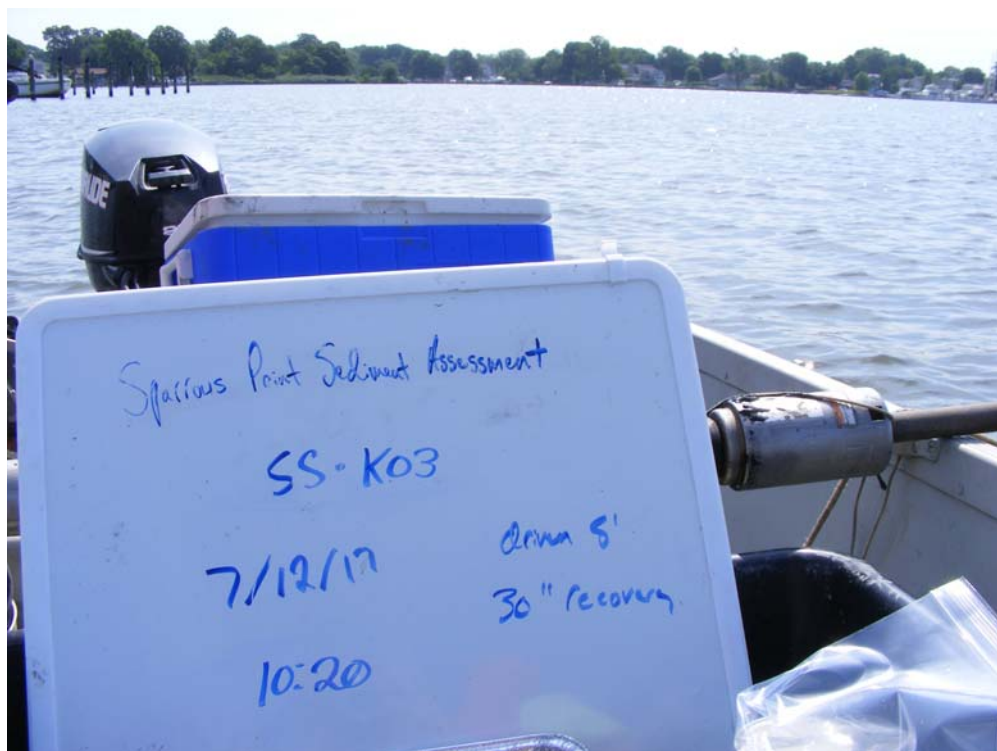 UDE
Sparrows Point Sediment Assessment
SS-K03
7/12/17
driven 8'
30" recovery
10:20